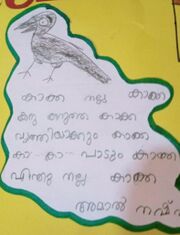 കാക്ക നല്ല കാക്ക
കറു കറുത്ത കാക്ക
വൃത്തിയാക്കും കാക്ക
കാ കാ പാടും കാക്ക
എന്തു നല്ല കാക്ക
അമാൽ